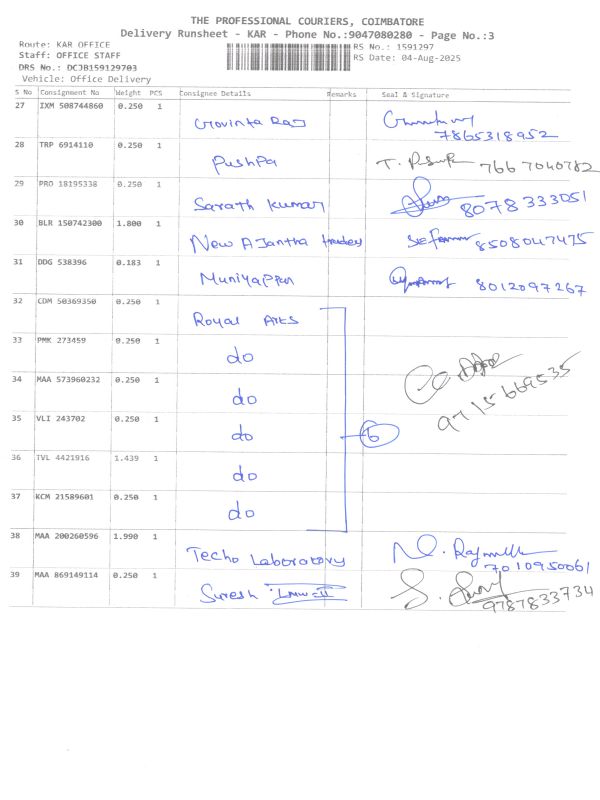 THE PROFESSIONAL COURIERS, COIMBATORE
Delivery Runsheet - KAR - Phone No.:9047080280 - Page No.:3
Route: KAR OFFICE
RS No.: 1591297
Staff: OFFICE STAFF
RS Date: 04-Aug-2025
DRS No.: DCJB159129703
Vehicle: Office Delivery
S No Consignment No Weight PCS Consignee Details Remarks Seal & Signature
27 IXM 508744860 0.250 1
Govinta Raj
7865318952
28 TRP 6914110 0.250 1
Pushpa 7667040782
29 PRO 18195338 0.250 1
Sarath Kumar 8078333051
30 BLR 150742300 1.800 1
New AJantha 8508047475
31 DDG 538396 0.183 1
Muniyappan 8012097267
32 CDM 50369350 0.250 1
Royal Arts
33 PMK 273459 0.250 1
do
34 MAA 573960232 0.250 1
do 9715669535
35 VLI 243702 0.250 1
do 6
36 TVL 4421916 1.439 1
do
37 KCM 21589601 0.250 1
do
38 MAA 200260596 1.990 1
Techo Laboratory
7010950061
39 MAA 869149114 0.250 1
Suresh
9787833734